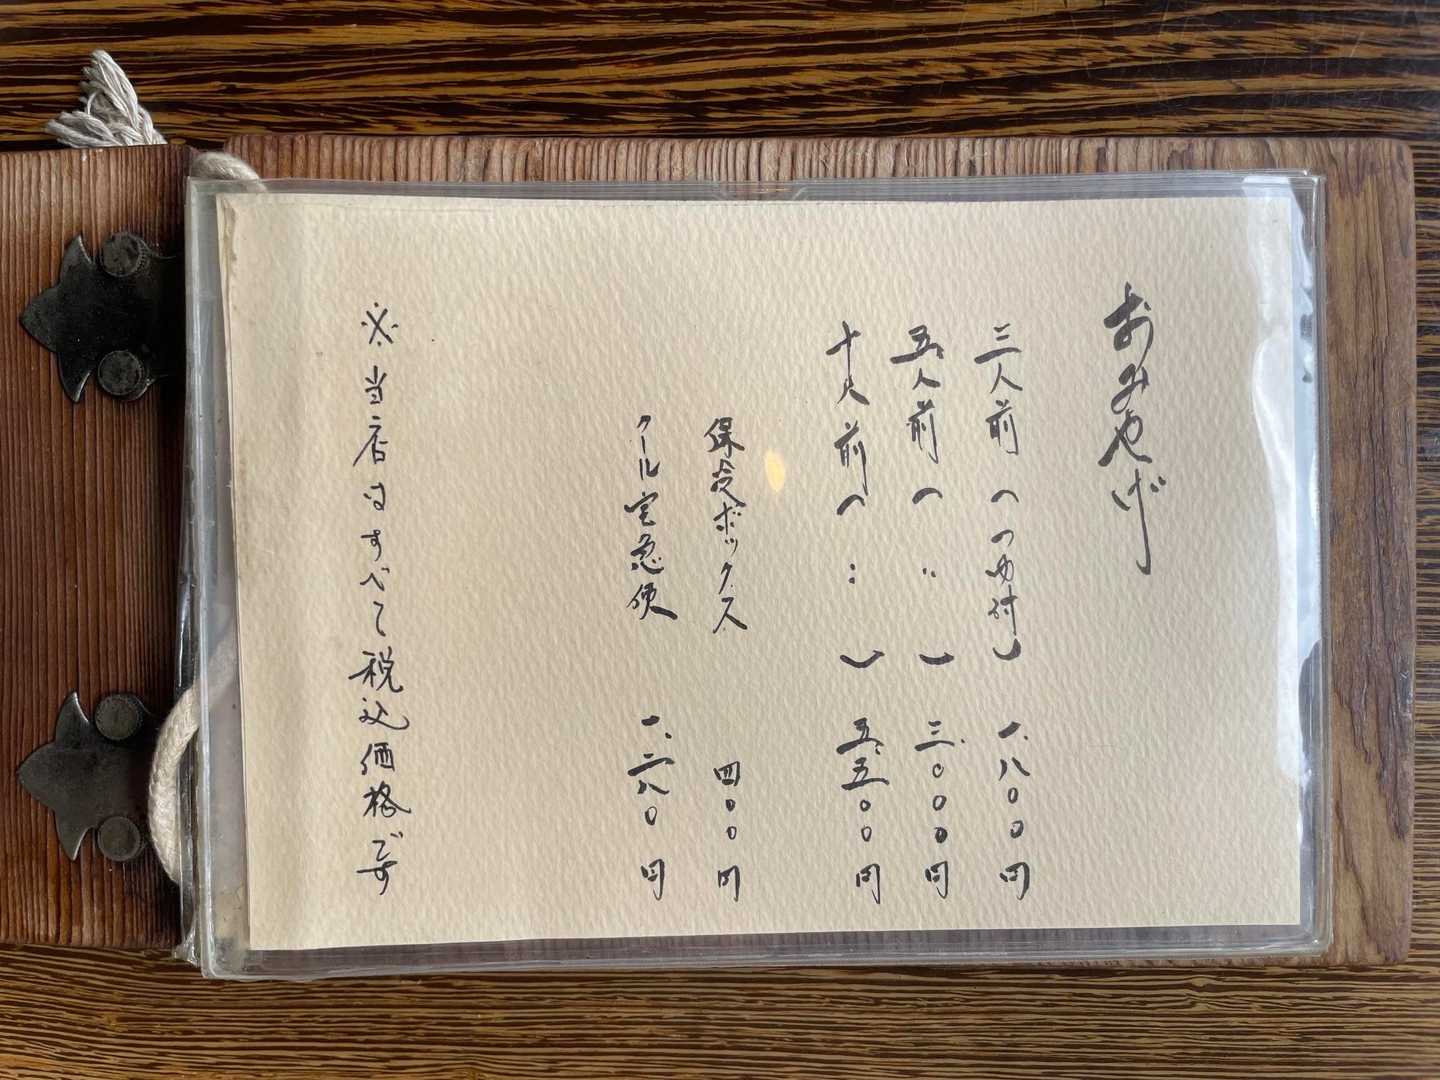 おみやげ
三人前（つゆ付） 一、八〇〇円
五人前（ 〃 ） 三、〇〇〇円
十人前（ 〃 ） 五、五〇〇円
保冷ボックス 四〇〇円
クール宅急便 一、二八〇円
※当店はすべて税込価格です